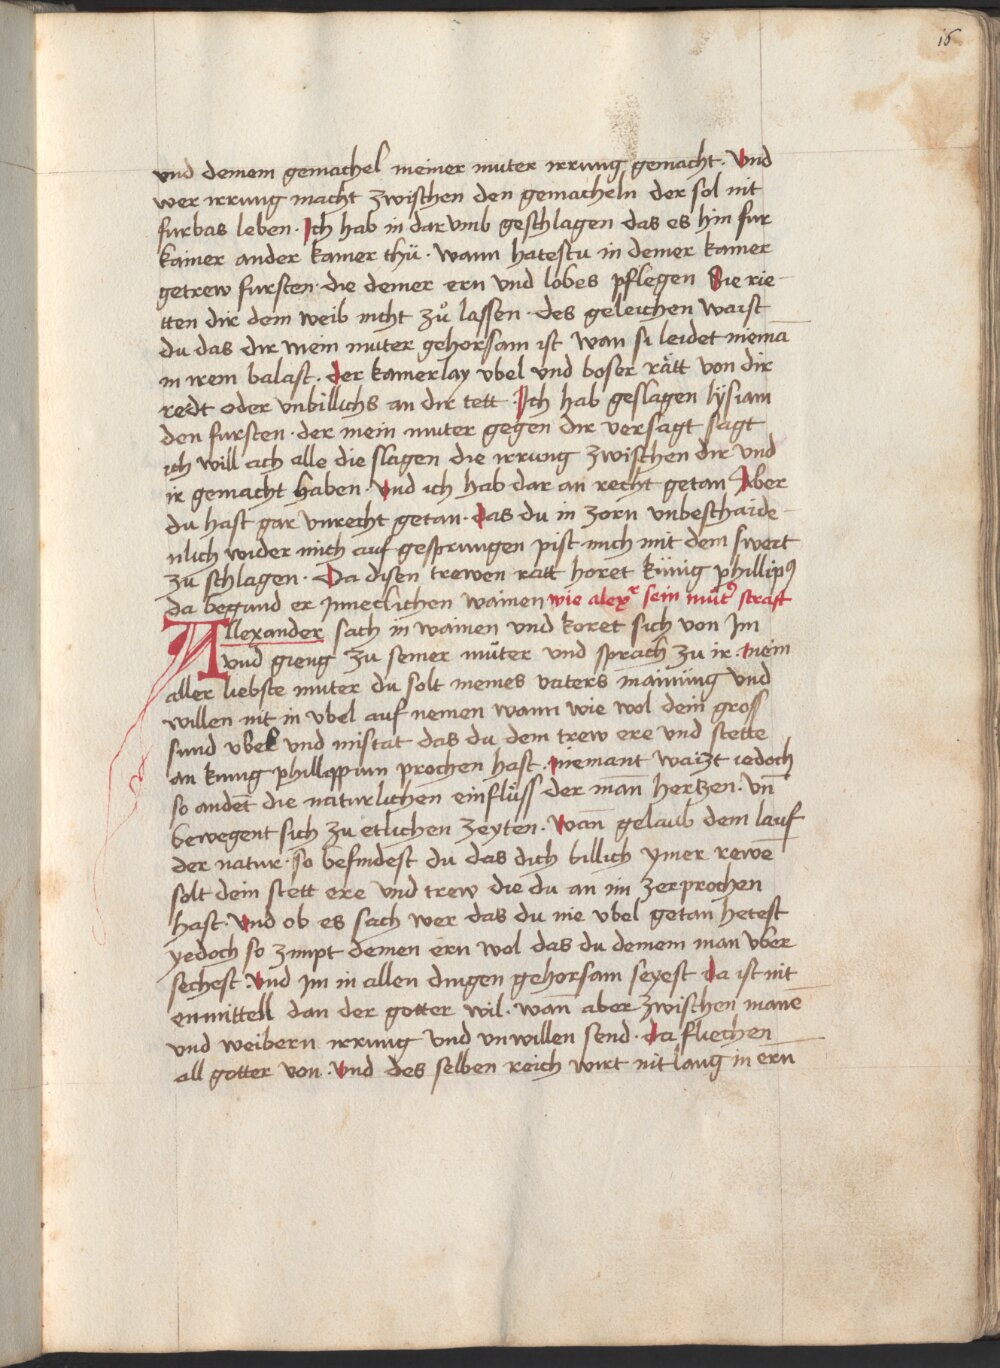 16
vnd deinem gemachel meiner muter irrung gemacht. Vnd
wer irrung macht zwischen den gemacheln der sol nit
furbas leben. Ich hab in dar vmb geschlagen das es hin fur
kainer ander kainer thü. wann hatestu in deiner kamer
getrew fursten. die deiner ern vnd lobes pflegen Sie rie-
tten dir dem weib nicht zů lassen. des geleichen waist
du das dir mein muter gehorsam ist wan si leidet niemā
in irem balast. der kamerlay vbel vnd boser rätt von dir
redt oder vnbillichs an dir tett. Ich hab geslagen lÿsiam
den fursten. der mein muter gegen dir versagt sagt
ich will ach alle die slagen die irrung zwischen dir vnd
ir gemacht haben. vnd ich hab dar an recht getan Aber
du hast gar vnrecht getan. das du in zorn vnbeschaide-
nlich wider mich auf gesprungen pist mich mit dem swert
zu schlagen. Da disen trewen ratt horet künig phillipꝰ
da begund er Jnneclichen wainen wie alexʳ sein mütʾ straft
Allexander sach in wainen vnd koret sich von Jm
vnd gieng zu seiner müter vnd sprach zu ir mein
aller liebste muter du solt meines vaters mainung vnd
willen nit in vbel auf nemen wann wie wol dein gross
sund vbel vnd mistat das du dem trew ere vnd stette
an kunig phillippum prochen hast. niemant waizt iedoch
so andet die naturlichen einflüss der man̄ hertzen. vn̄
bewegent sich zu etlichen zeyten. wan̄ gelaub dem lauf
der natur. so befindest du das dich billich ymer rewē
solt dein stett ere vnd trew die du an im zerprochen
hast. vnd ob es sach wer das du nie vbel getan hetest
yedoch so zimpt deinen ern wol das du deinem man vber
sechest. vnd Jm in allen dingen gehorsam seyest da ist nit
enmittell dan der gotter wil. wan̄ aber zwischen manē
vnd weibern irrung vnd vnwillen send. da fliechen
all gotter von. vnd des selben reich wirt nit lang in ern